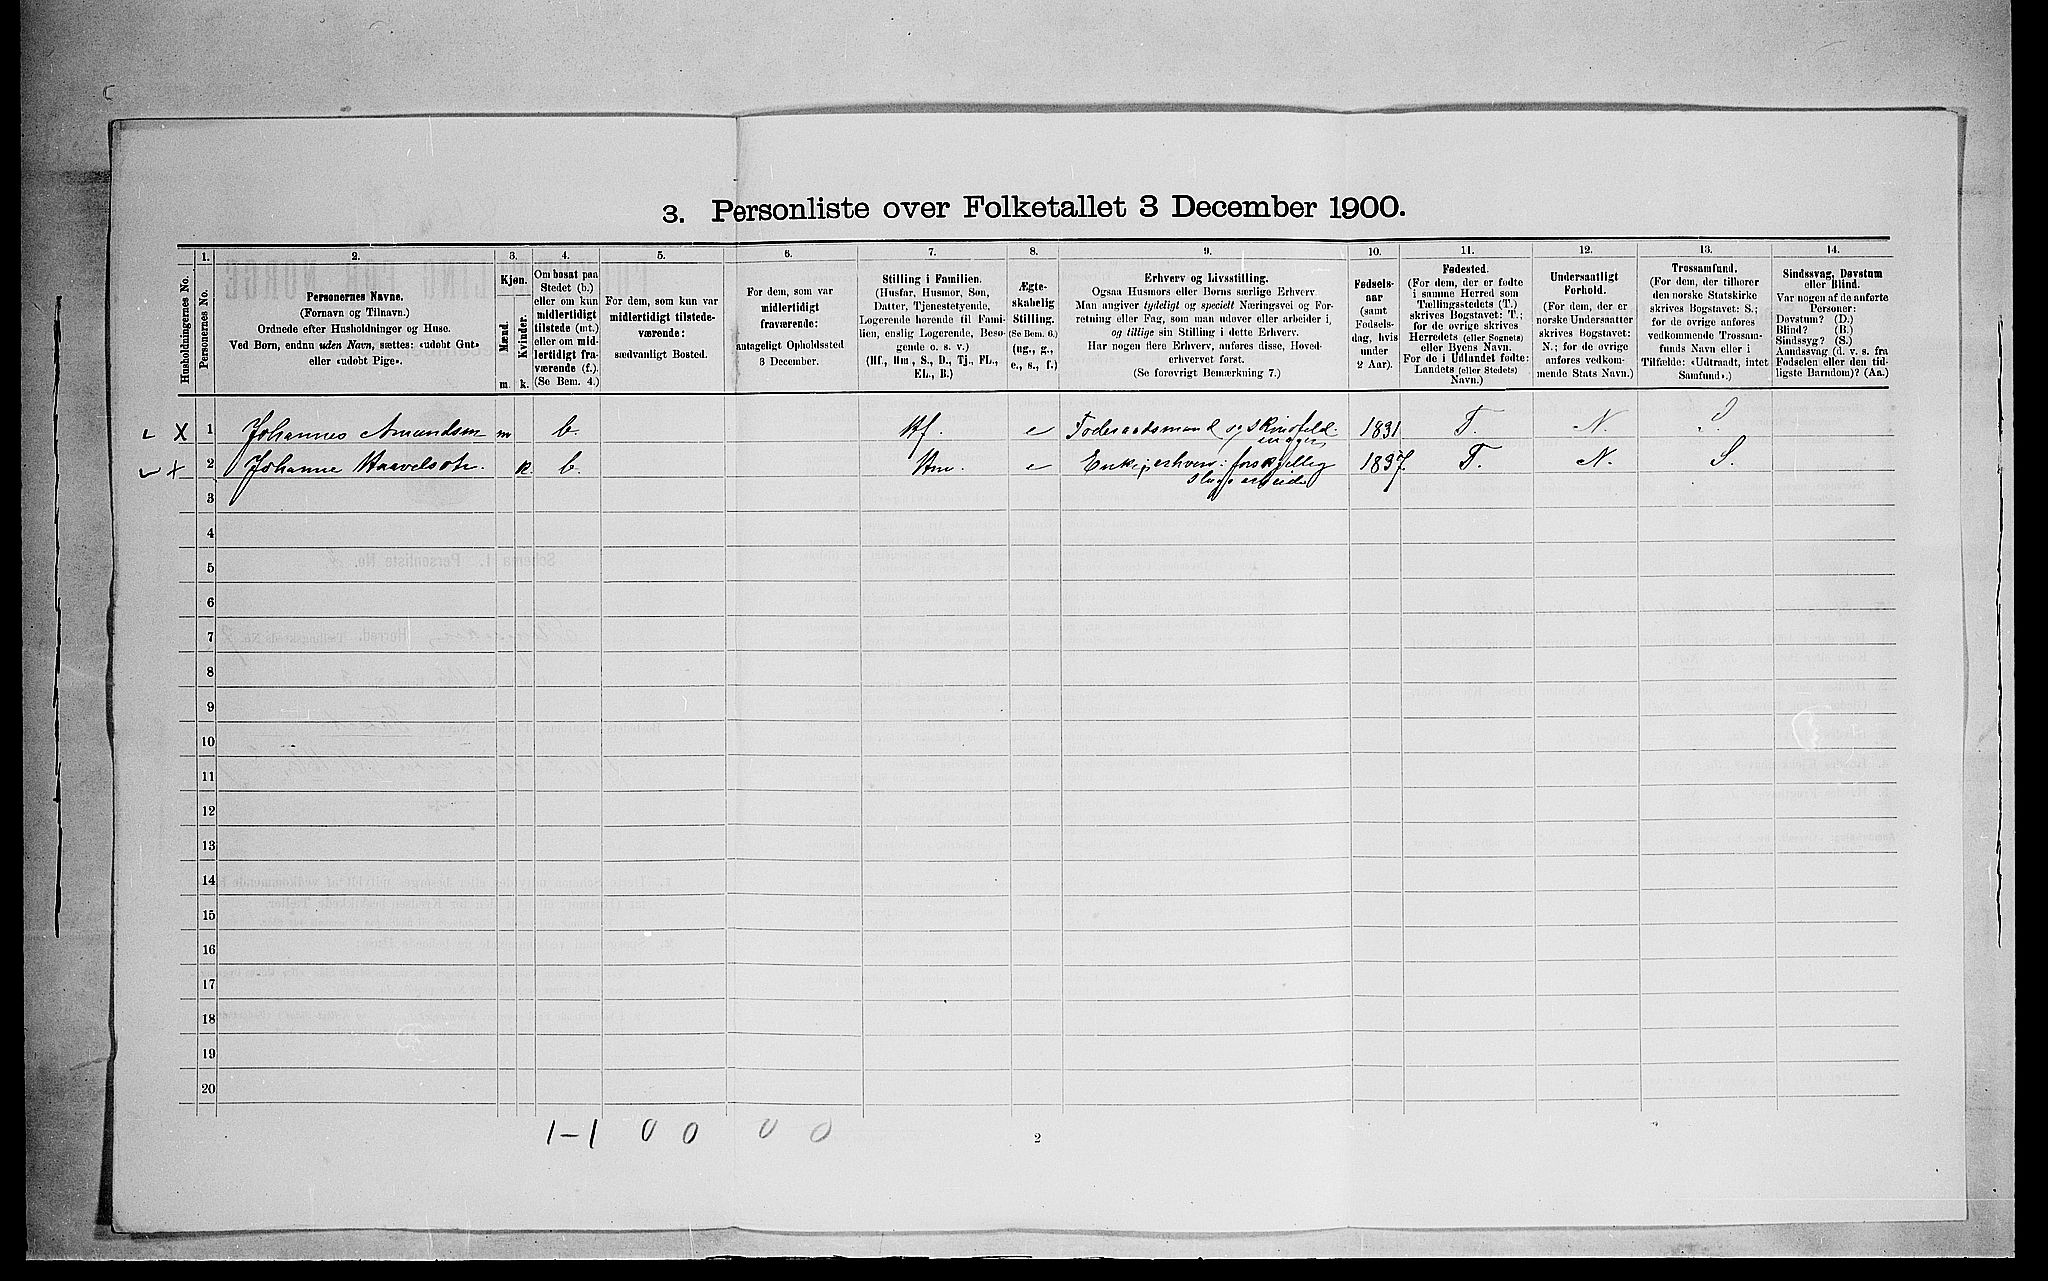 3. Personliste over Folketallet 3 December 1900.
1. 2. 3. 4. 5. 6. 7. 8. 9. 10. 11. 12. 13. 14.
Husholdningernes No.
Personernes No.
Personernes Navne.
(Fornavn og Tilnavn.)
Ordnede efter Husholdninger og Huse.
Ved Børn, endnu uden Navn, sættes: «udøbt Gut»
eller «udøbt Pige».
Kjøn.
Mænd.
Kvinder.
m. k.
Om bosat paa
Stedet (b.)
eller om kun
midlertidigt
tilstede (mt.)
eller om mid-
lertidigt fra-
værende (f.).
(Se Bem. 4.)
For dem, som kun var
midlertidigt tilstede-
værende:
sædvanligt Bosted.
For dem, som var
midlertidigt
fraværende:
antageligt Opholdssted
3 December.
Stilling i Familien.
(Husfar, Husmor, Søn,
Datter, Tjenestetyende,
Logerende hørende til Fami-
lien, enslig Logerende, Besø-
gende o. s. v.)
(Hf., Hm, S., D., Tj., FL.,
EL., B.)
Ægte-
skabelig
Stilling.
(Se Bem. 6.)
(ug., g.,
e., s., f.)
Erhverv og Livsstilling.
Ogsaa Husmors eller Børns særlige Erhverv.
Man angiver tydeligt og specielt Næringsvei og For-
retning eller Fag, som man udøver eller arbeider i,
og tillige sin Stilling i dette Erhverv.
Har nogen flere Erhverv, anføres disse, Hoved-
erhvervet først.
(Se forøvrigt Bemærkning 7.)
Fødsels-
aar
(samt
Fødsels-
dag, hvis
under
2 Aar).
Fødested.
(For dem, der er fødte
i samme Herred som
Tællingsstedets (T.)
skrives Bogstavet: T.;
for de øvrige skrives
Herredets (eller Sognets)
eller Byens Navn.
For de i Udlandet fødte:
Landets (eller Stedets)
Navn.)
Undersaatligt
Forhold.
(For dem, der er
norske Undersaatter
skrives Bogstavet:
N.; for de øvrige
anføres vedkom-
mende Stats Navn.)
Trossamfund.
(For dem, der tilhører
den norske Statskirke
skrives Bogstavet: S.;
for de øvrige anføres
vedkommende Trossam-
funds Navn eller i
Tilfælde: «Udtraadt, intet
Samfund».)
Sindssvag, Døvstum
eller Blind.
Var nogen af de anførte
Personer:
Døvstum? (D.)
Blind? (B.)
Sindssyg? (S.)
Aandssvag (d. v. s. fra
Fødselen eller den tid-
ligste Barndom)? (Aa.)
X 1 Johannes Amundsen m b. Hf. e Føderaadsmand og Skindfeld- 1831 T. N. S.
X 2 Johanne Haavelsdtr. k. b. Hm. e Enke, erhverv: forskjellig 1837. T. N. S.
slags arbeide
3
4
5
6
7
8
9
10
11
12
13
14
15
16
17
18
19
20
1-1 0 0 0 0
2